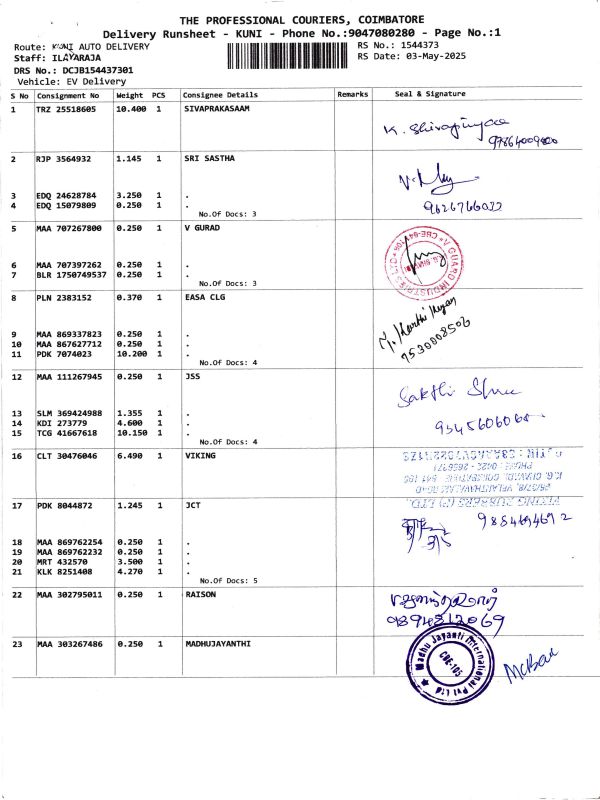 THE PROFESSIONAL COURIERS, COIMBATORE
Delivery Runsheet - KUNI - Phone No.:9047080280 - Page No.:1
Route: KUNI AUTO DELIVERY
RS No.: 1544373
Staff: ILAYARAJA
RS Date: 03-May-2025
DRS No.: DCJB154437301
Vehicle: EV Delivery
S No Consignment No Weight PCS Consignee Details Remarks Seal & Signature
1 TRZ 25518605 10.400 1 SIVAPRAKASAAM
2 RJP 3564932 1.145 1 SRI SASTHA
3 EDQ 24628784 3.250 1 .
4 EDQ 15079809 0.250 1 .
No.Of Docs: 3
5 MAA 707267800 0.250 1 V GURAD
6 MAA 707397262 0.250 1 .
7 BLR 1750749537 0.250 1 .
No.Of Docs: 3
8 PLN 2383152 0.370 1 EASA CLG
7530008506
9 MAA 869337823 0.250 1 .
10 MAA 867627712 0.250 1 .
11 PDK 7074023 10.200 1 .
No.Of Docs: 4
12 MAA 111267945 0.250 1 JSS
Sakthi
13 SLM 369424988 1.355 1 .
14 KDI 273779 4.600 1 .
15 TCG 41667618 10.150 1 .
No.Of Docs: 4
16 CLT 30476046 6.490 1 VIKING
17 PDK 8044872 1.245 1 JCT
18 MAA 869762254 0.250 1 .
19 MAA 869762232 0.250 1 .
20 MRT 432570 3.500 1 .
21 KLK 8251408 4.270 1 .
No.Of Docs: 5
22 MAA 302795011 0.250 1 RAISON
9894312069
23 MAA 303267486 0.250 1 MADHUJAYANTHI
Madhu Jayanti International Pvt Ltd
CBE-105